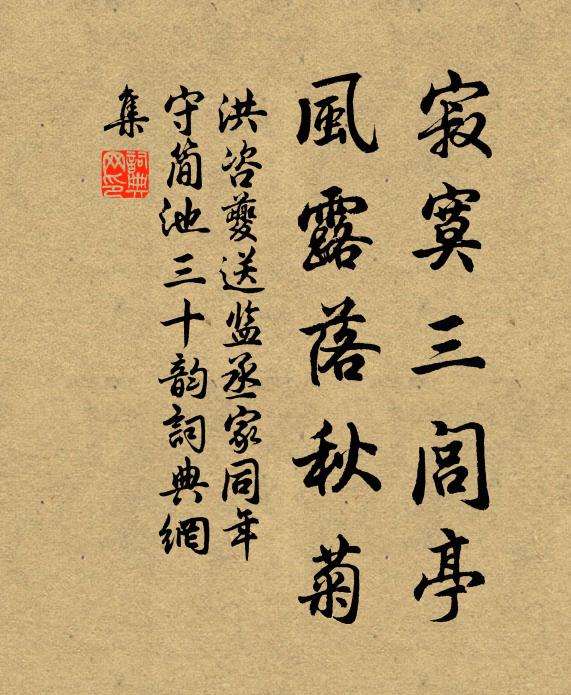 寂寞三闾亭
風露落秋菊
洪咨夔送监丞家同年
守简池三十韵詞典網
集
詞典網印